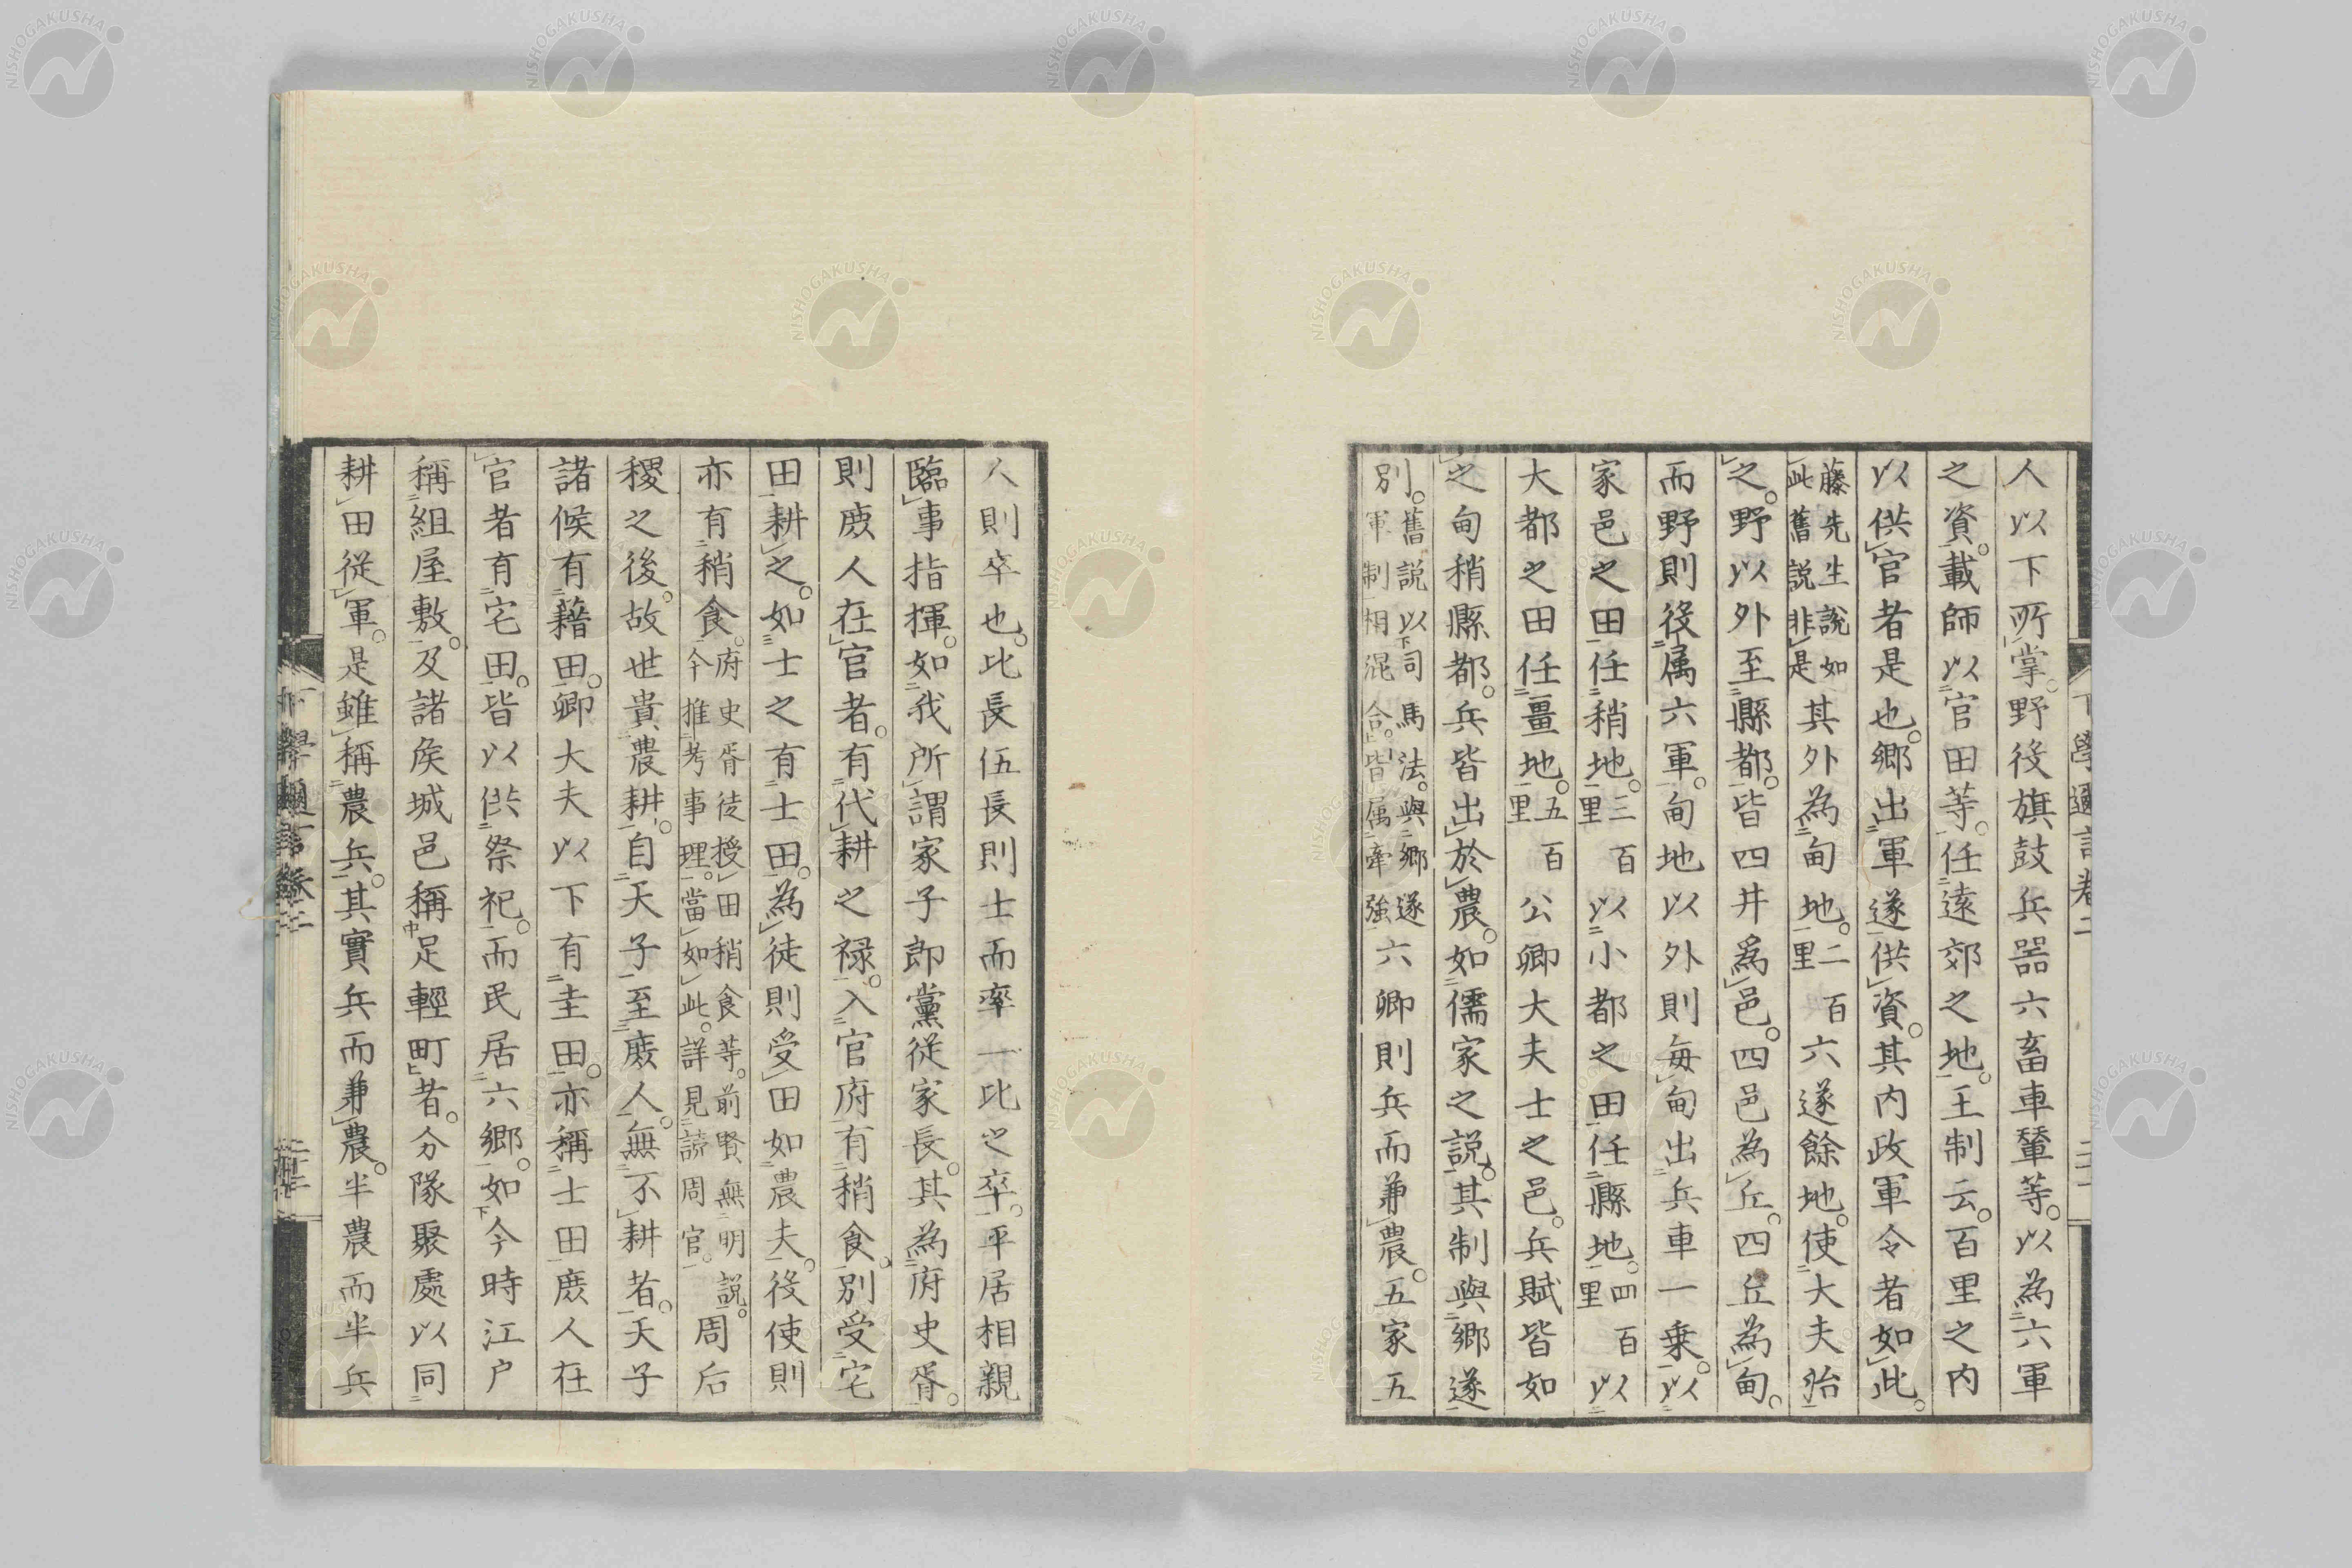 人以下所掌。野役旗鼓兵器六畜車輦等。以為六軍
之資。載師以官田等。任遠郊之地。王制云。百里之内
以供官者是也。郷出軍遂供資。其内政軍令者如此。
藤先生說如此舊説非是其外為甸地。二百里六遂餘地。使大夫治
之。野以外至縣都。皆四井爲邑。四邑為丘。四丘為甸。
而野則役属六軍。甸地以外則毎甸出兵車一乗。以
家邑之田任稍地。三百里以小都之田任縣地。四百里以
大都之田任畺地。五百里公卿大夫士之邑。兵賦皆如
之甸稍縣都。兵皆出於農。如儒家之説。其制與郷遂
別。舊説以司馬法。與郷遂軍制相混合。皆属牽強六卿則兵而兼農。五家五
下學邇言卷二
人則卒也。比長伍長則士而率一比之卒。平居相親
臨事指揮。如我所謂家子即黨従家長。其為府史胥。
則庻人在官者。有代耕之禄。入官府有稍食。別受宅
田耕之。如士之有士田。為徒則受田如農夫。役使則
亦有稍食。府史胥徒授田稍食等。前賢無明説。今推考事理。當如此。詳見讀周官。周后
稷之後。故世貴農耕。自天子至庻人。無不耕者。天子
諸候有藉田。卿大夫以下有圭田。亦稱士田。庻人在
官者有宅田。皆以供祭祀。而民居六郷。如今時江户
稱組屋敷。及諸矦城邑稱足輕町者。分隊聚處以同
耕田従軍。是雖稱農兵。其實兵而兼農。半農而半兵